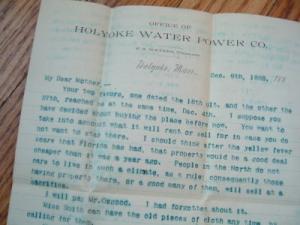 OFFICE OF
HOLYOKE WATER POWER CO.
Holyoke, Mass., Dec. 6th, 1888, 188
My Dear Mother,—
Your two favors, one dated the 18th ult. and the other the
27th, reached me at the same time, Dec. 4th. I suppose you
have decided about buying the place before now. You want to
take into account what it will rent or sell for in case you do
not want to stay there. I should think after the yellow fever
scare that Florida has had, that property would be a good deal
cheaper than it was a year ago. People in the North do not
care to live in such a climate, as a rule; consequently those
having property there, or a good many of them, will sell at a
sacrifice.
I will pay Mr. Osgood. I had forgotten about it.
Miss Smith can have the old pieces of cloth any time, by
calling for them.